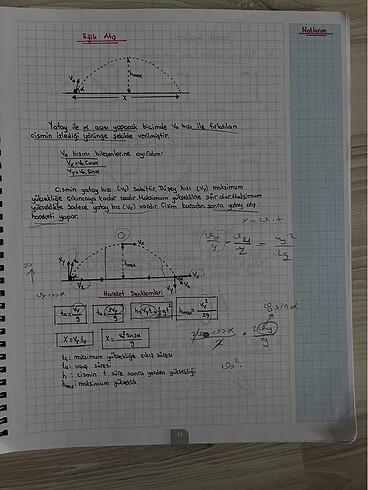 Eğik Atış
Notlarım
V₀
hmax
X
Yatay ile α açısı yapacak biçimde V₀ hızı ile fırlatılan
cismin izlediği yörünge şekilde verilmiştir.
V₀ hızını bileşenlerine ayıralım:
Vₓ=V₀.Cosα
Vy=V₀.Sinα
Cismin yatay hızı (Vₓ) sabittir. Düşey hızı (Vy) maksimum
yüksekliğe çıkıncaya kadar azalır. Maksimum yükseklikte sıfır olur. Maksimum
yükseklikte sadece yatay hız (Vₓ) vardır. Cisim buradan sonra yatay atış
hareketi yapar.
x = v.t
hmax
Hareket Denklemleri
tç=Vy/g
tu=2Vy/g
h=Vy.t-½gt²
hmax=Vy²/2g
X=Vₓ.tu
X=V₀²sin2α/g
tç: maksimum yüksekliğe çıkış süresi
tu: uçuş süresi
h : cismin t süre sonra yerden yüksekliği
hmax: maksimum yükseklik